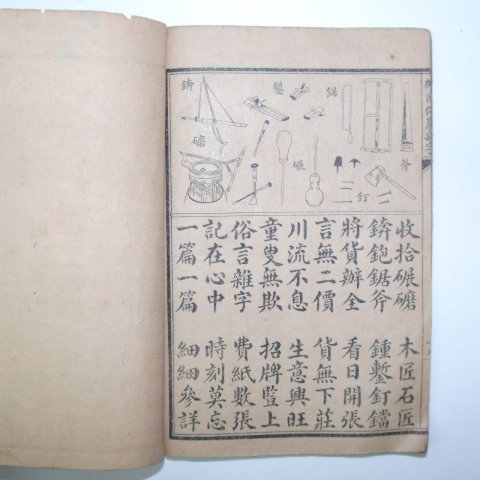 鋸
鏨
錛
斧
碾
礳
釘
收拾碾礳 木匠石匠
錛鉋鋸斧 鍾鏨釘鐺
將貨辦全 看日開張
言無二價 貨無下莊
川流不息 生意興旺
童叟無欺 招牌豎上
俗言雜字 費紙數張
記在心中 時刻莫忘
一篇一篇 細細參詳